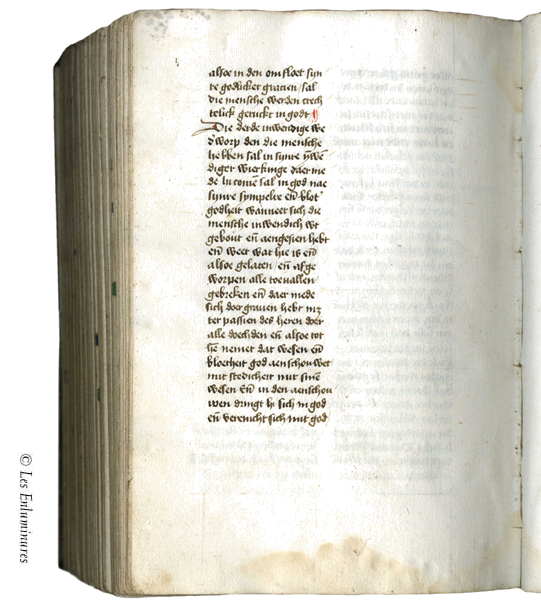 alsoe in den omsloet sijn
re godlicker gracien / sal
die mensche werden crech
telick geruckt in godt ¶
Die derde inwendige we
dworp den die mensche
hebben sal in sijnre ynwē
diger wierkinge daer me
de hi comē sal in god nae
sijnre sympelre eñ blot
godheit wanneer sich die
mensche inwendich wt
gebout eñ aengesien hebt
eñ weet wat hie is eñ
alsoe gelaten eñ afge
worpen alle toevallen
gebreken eñ daer mede
sich doer grauen hebt mz
ter passien des heren doer
alle doechden eñ alsoe tot
hē nemet dat wesen eñ
bloetheit god aenschouwet
mit stedicheit mit sinē
wesen Eñ in den aenschou
wen dringt hi sich in god
eñ verenicht sich mit god
© Les Enluminures